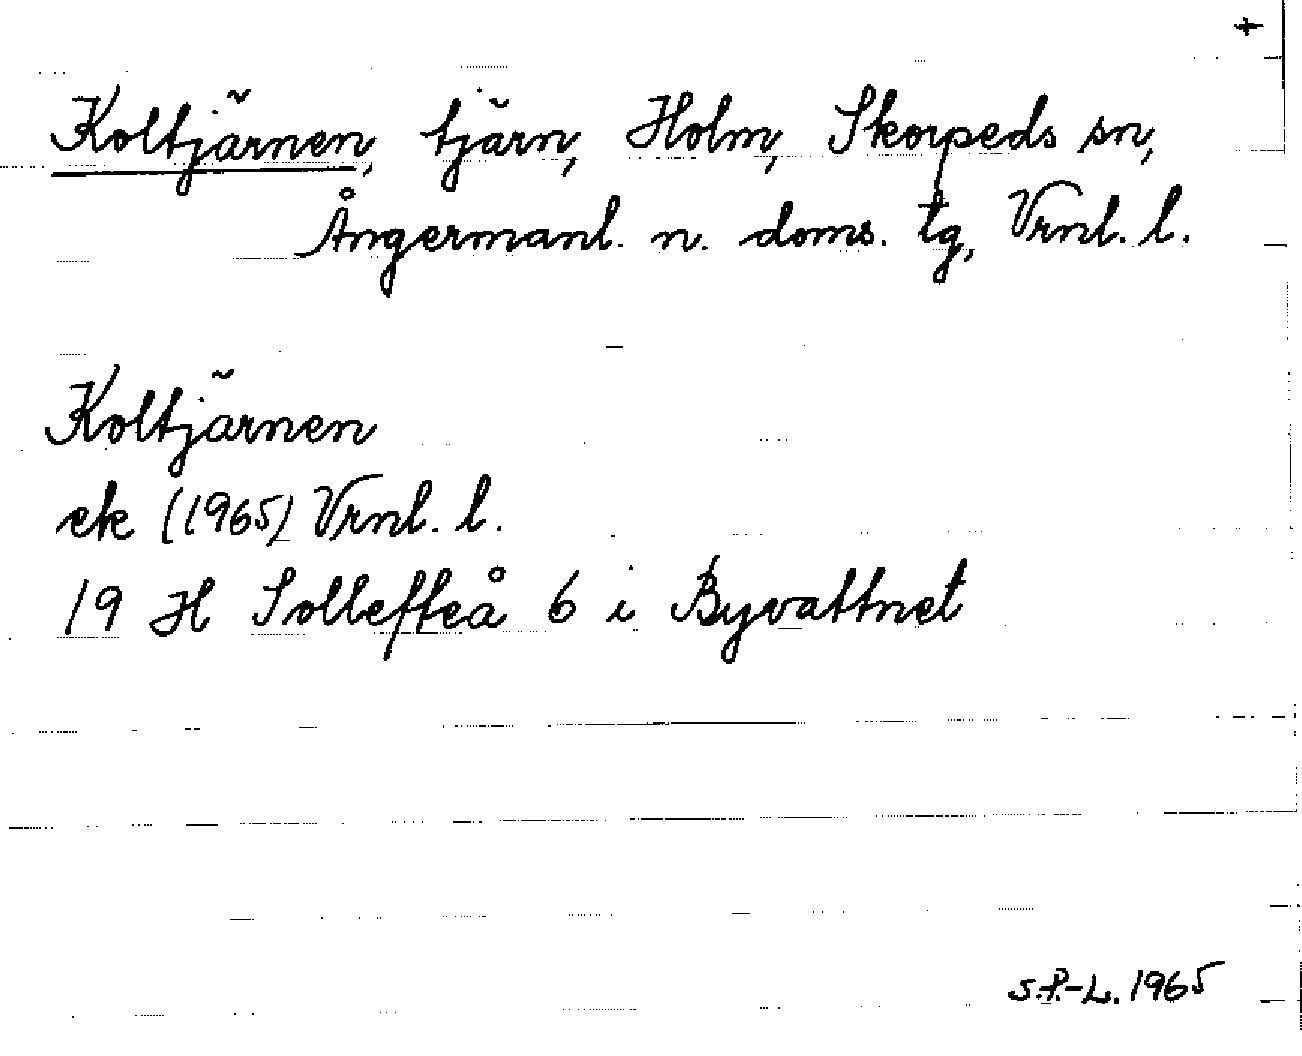 +
Koltjärnen, tjärn, Holm, Skorpeds sn,
Ångermanl. n. doms. tg, Vrnl. l.
Koltjärnen
ek (1965) Vrnl. l.
19 H Sollefteå 6 i Byvattnet
S.P.-L. 1965